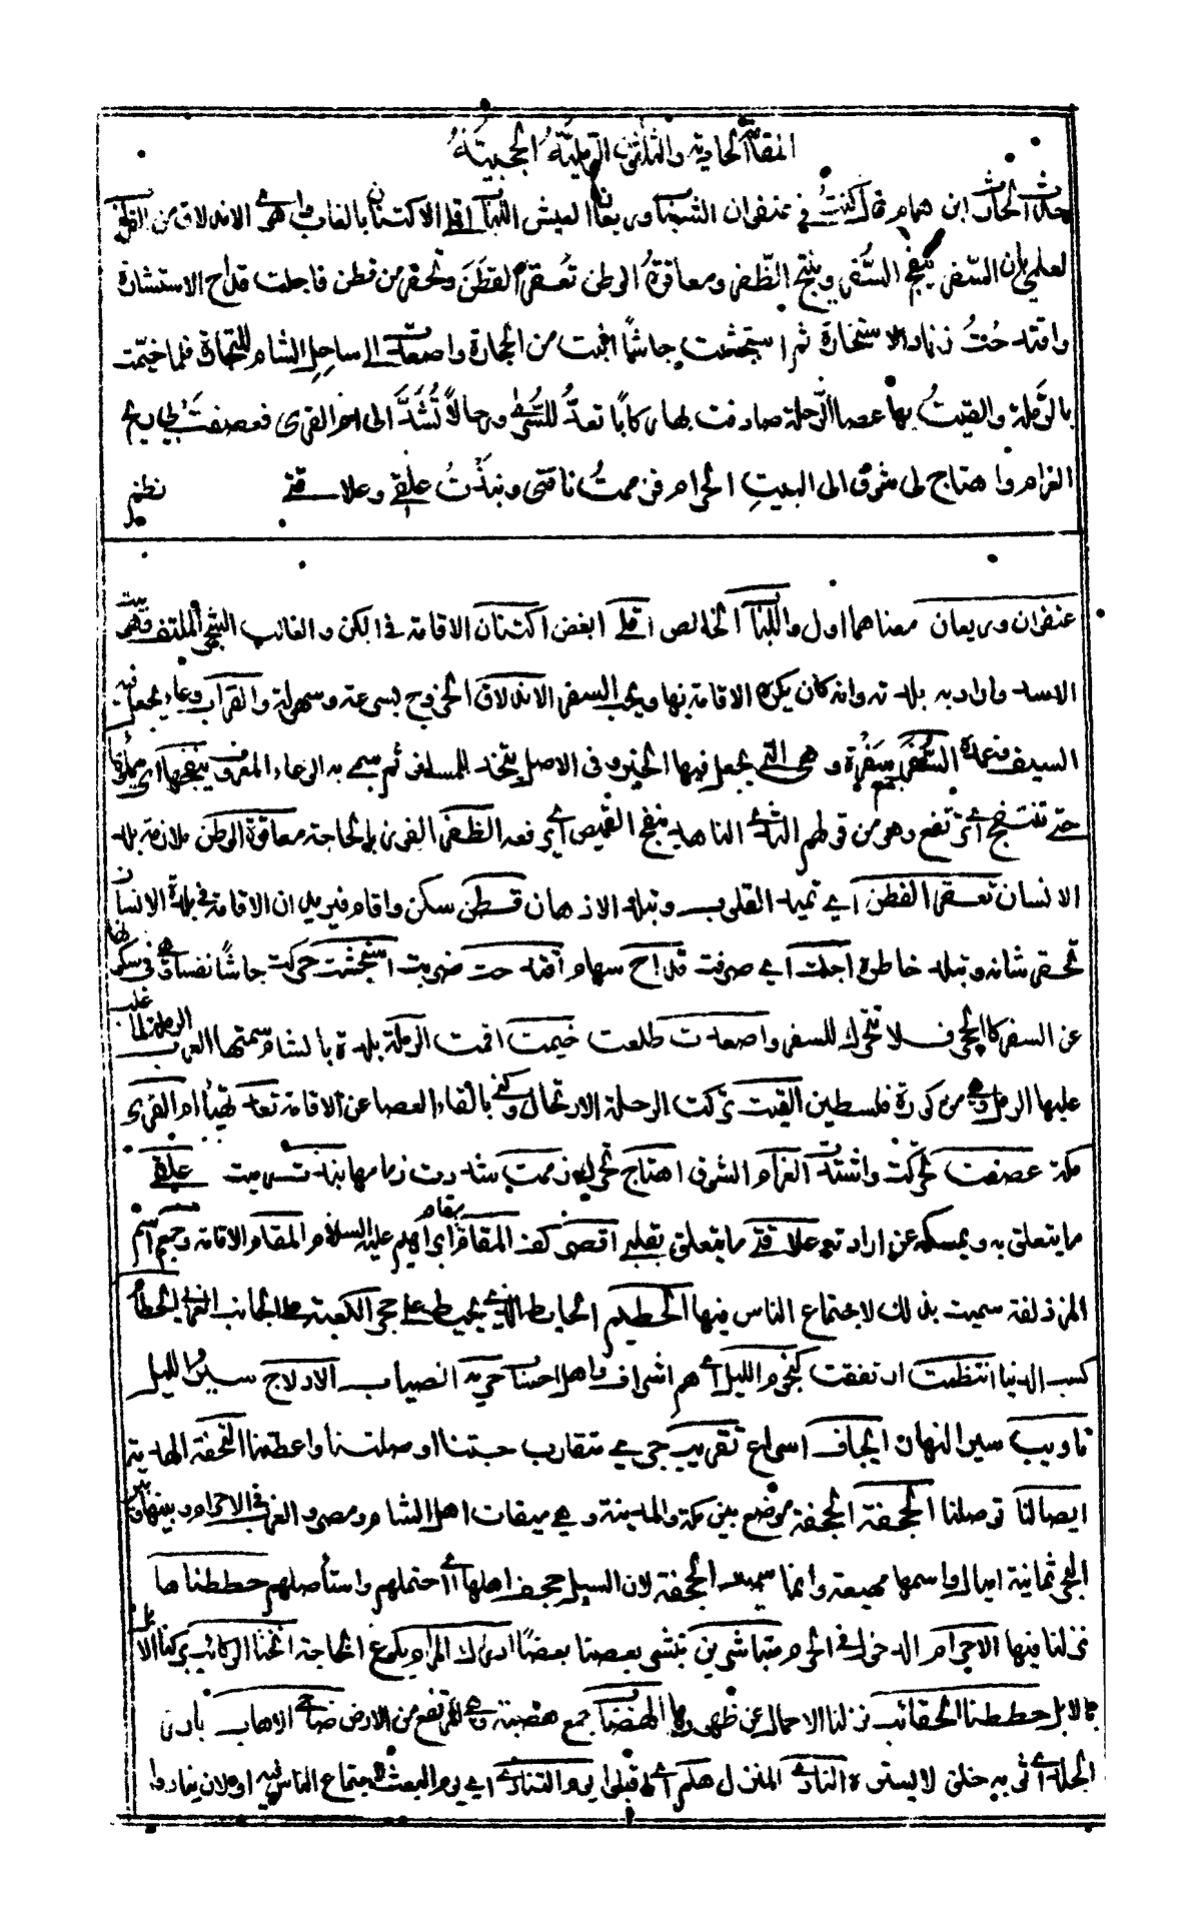 المقامة الحادية والثلاثون الرملية الحجبية
حدث الحارث ابن همام قال كنت في عنفوان الشباب وريعان العيش اللباب اقلى الاكتنان بالغاب واهوى الاندلاق من القراب
لعلمي بان السفر ينفج السفر وينتج الظفر ومعاقرة الوطن تعقر الفطن وتحقر من قطن فاجلت قداح الاستشارة
واقتدحت زناد الاستخارة ثم استجشت جاشا اثبت من الحجارة واصعدت الى ساحل الشام للتجارة فلما خيمت
بالرملة والقيت بها عصا الرحلة صادفت بها ركابا تعد للسرى ورحالا تشد الى ام القرى فعصفت بي ريح
الغرام واهتاج لي شوق الى البيت الحرام فزممت ناقتي ونبذت علقي وعلاقتي نظم
عنفوان وريعان معناهما اول واللباب الخالص اقلى ابغض اكتنان الاقامة في الكن والغاب الشجر الملتف وهي بيت
الاسد واراد به بلدته وانه كان يكره الاقامة بها ويحب السفر الاندلاق الخروج بسرعة وسهولة والقراب وعاء يجعل فيه
السيف وغمده السفر جمع سفرة وهي التي يجعل فيها الخبز وفي الاصل يتخذ للمسافر ثم سمي به الوعاء المعروف ينفجها اي يملؤها
حتى تنتفج اي ترتفع وهو من قولهم الثدي الناهد ينفج القميص اي يرفعه الظفر الفوز بالحاجة معاقرة الوطن ملازمة بلد
الانسان تعقر الفطن اي تميت القلوب وتبلد الاذهان قطن سكن واقام فيريد ان الاقامة في بلدة الانسان
تحقر شانه وتبلد خاطره اجلت اي صرفت قداح سهام اقتدحت ضربت استجشت حركت جاشا نفسا وهي في سكونها
عن السفر كالحجر ف لا تتحرك للسفر واصعدت طلعت خيمت اقمت الرملة بلدة بالشام سمتها العرب الرملة لما غلب
عليها الرمل وهي من كورة فلسطين القيت تركت الرحلة الارتحال وكنى بالقاء العصا عن الاقامة تعد تهيأ ام القرى
مكة عصفت تحركت واشتدت الغرام الشوق اهتاج تحرك زممت شددت زمامها نبذت رميت علقي
ما يتعلق به ويمسكه عن ارادته علاقتي ما يتعلق بقلبي اقصر كف المقام مقام ابراهيم عليه السلام والمقام الاقامة وجمع اسم
المزدلفة سميت بذلك لاجتماع الناس فيها الحطيم الحايط الذي يحيط على حجر الكعبة من الجانب الغربي الحطام
كسب الدنيا انتظمت ارتفقت كنجوم الليل اي هم اشراف واهل احسناب جرية انصباب الادلاج سير الليل
تاويب سير النهار ايجاف اسراع تقريب جري متقارب حبتنا اوصلتنا واعطتنا التحفة الهدية
ايصالنا توصلنا الجحفة الجحفة موضع بين مكة والمدينة وهي ميقات اهل الشام ومصر والغرب في الاحرام وبينها وبين
البحر ثمانية اميال واسمها مهيعة وانما سميت الجحفة لان السيل جحف اهلها اي احتملهم واستأصلهم حططناها
نزلنا فيها الاحرام الدخول في الحرم متباشرين تبشر بعضنا بعضا ادراك المرام بلوغ الحاجة انخنا الركائب بركنا الابل
حططنا الحقائب نزلنا الاحمال عن ظهورها الهضاب جمع هضبة وهي المرتفع من الارض ضاحي الاهاب بادي
الجلد اي ثوبه خلق لا يستره النادي المنزل هلم اي اقبلوا يوم التنادي اي يوم البعث واجتماع الناس فيه اولان ينادوا